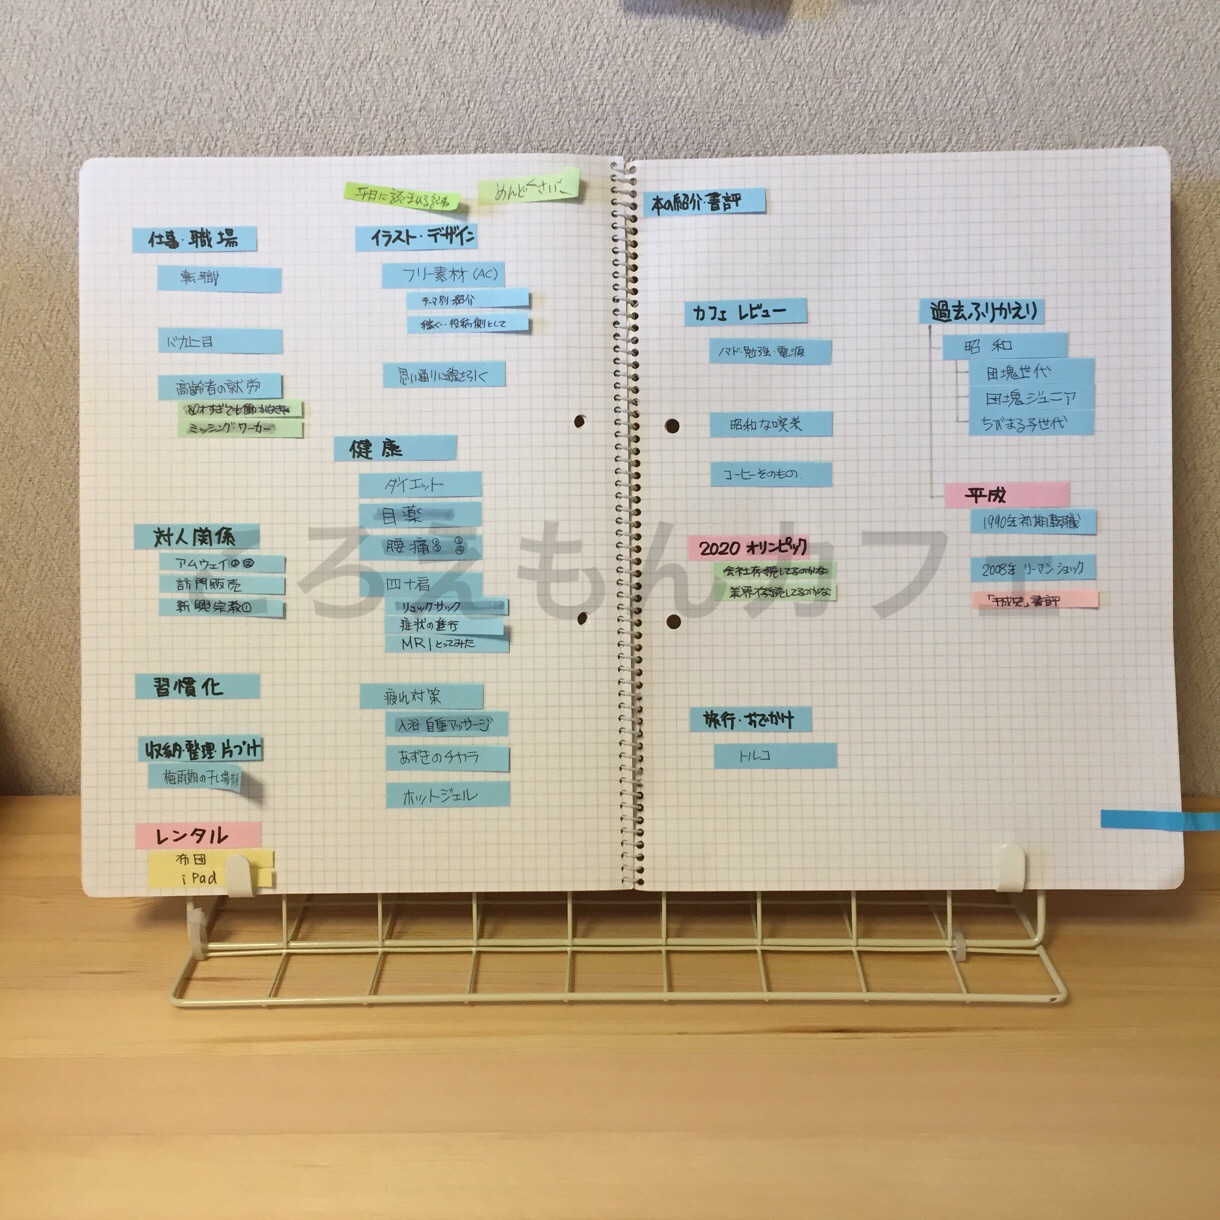 めんどくさい
仕事・職場
転職
バカ上司
高齢者の就労
ミッシングワーカー
対人関係
アムウェイ①②
訪問販売
新興宗教①
習慣化
収納・整理・片づけ
レンタル
布団
iPad
イラスト・デザイン
フリー素材(AC)
テーマ別紹介
稼ぐ…投稿側として
思い通りに線を引く
健康
ダイエット
目薬
腰痛
四十肩
リュックサック
症状の進行
MRIとってみた
疲れ対策
入浴 自重マッサージ
あずきのチカラ
ホットジェル
本の紹介・書評
カフェ レビュー
ノマド・勉強・電源
昭和な喫茶
コーヒーそのもの
2020 オリンピック
会社存続してるのかな
業界存続してるのかな
旅行・おでかけ
トルコ
過去ふりかえり
昭和
団塊世代
団塊ジュニア
ちびまる子世代
平成
1990年初期転職
2008年 リーマンショック
「平成史」書評
ころえもんカフェ